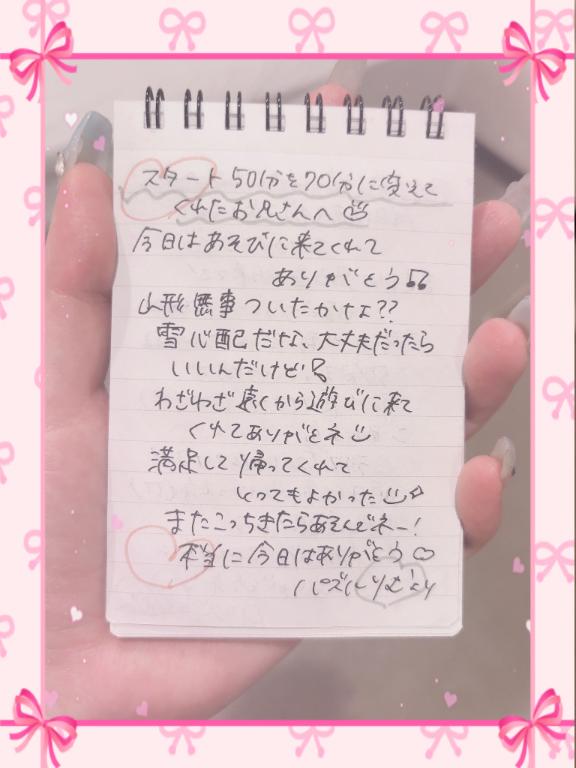 スタート50分を70分に変えて
くれたお兄さんへ
今日はあそびに来てくれて
ありがとう♫
山形無事ついたかなぁ??
雪心配だな、大丈夫だったら
いいんだけど!
わざわざ遠くから遊びに来て
くれてありがとネ
満足して帰ってくれて
とってもよかった
またこっちきたらあそんでネー!
本当に今日はありがとう♡
パズル りむより